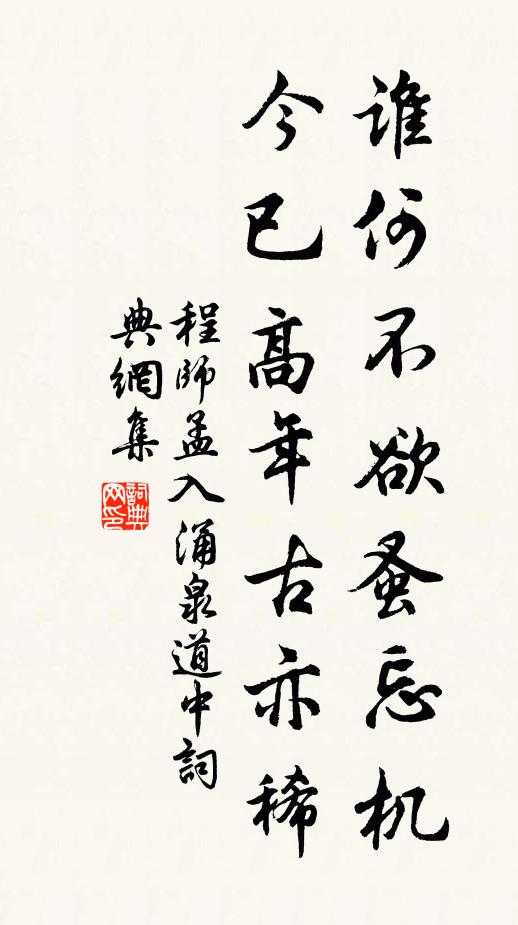 誰何不欲蚤忘机
今已高年古亦稀
程師孟入涌泉道中詞
典網集
詞典
网印